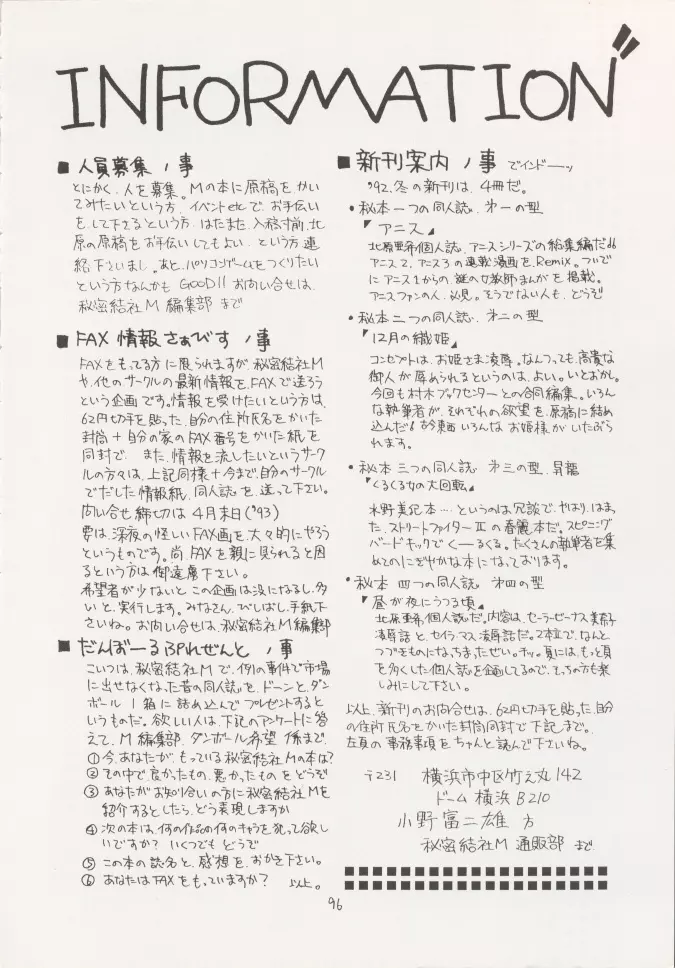 INFORMATION
■ 人員募集ノ事
とにかく、人を募集。Mの本に原稿をかい
てみたいという方、イベントetcで、お手伝い
をして下さるという方、はたまた、入稿寸前、北
原の原稿をお手伝いしてもよい、という方、連
絡下さいまし。あと、パソコンゲームをつくりたい
という方なんかもGOOD!! お向い合せは、
秘密結社M 編集部 まで
■ FAX 情報さぁびす ノ事
FAXをもってる方に限られますが、秘密結社M
や、他のサークルの最新情報を、FAXで送ろう
という企画です。情報を受けたいという方は、
62円切手を貼った、自分の住所氏名をかいた
封筒+自分の家のFAX番号をかいた紙を
同封で、また、情報を流したいというサーク
ルの方々は、上記同様+今まで、自分のサークル
でだした情報紙、同人誌を、送って下さい。
向い合せ締切は4月末日('93)
要は、深夜の怪しいFAX画を、大々的にやろう
というものです。尚、FAXを親に見られると困
るという方は御遠慮下さい。
希望者が少ないと、この企画は没になるし、多
いと、実行します。みなさん、びしばし、手紙下
さいね。お向い合せは、秘密結社M編集部
■ だんぼーるぷれぜんと ノ事
こいつは、秘密結社Mで、例の事件で市場
に出せなくなった昔の同人誌を、ドーンと、ダン
ボール1箱に詰め込んでプレゼントすると
いうものだ。欲しい人は、下記のアンケートに答
えて、M編集部、ダンボール希望 係まで、
①今、あなたが、もっている秘密結社Mの本は?
②その中で、良かったもの、悪かったものをどうぞ
③あなたがお知り合いの方に秘密結社Mを
紹介するとしたら、どう表現しますか
④次の本は、何の作品の何のキャラを犯って欲し
いですか? いくつでもどうぞ
⑤この本の誌名と、感想を、おかき下さい。
⑥あなたはFAXをもっていますか? 以上。
■ 新刊案内 ノ事 でインドーッ
'92.冬の新刊は、4冊だ。
・秘本一つの同人誌、第一の型
『アニス』
北原亜希個人誌、アニスシリーズの総集編だ!!
アニス2、アニス3の連載漫画を、Remix。ついで
にアニス1からの、謎の女教師まんがを掲載。
アニスファンの人、必見。そうでない人も、どうぞ
・秘本二つの同人誌、第二の型
『12月の織姫』
コンセプトは、お姫さま凌辱。なんつっても、高貴な
御人が辱められるというのは、よい。いとおかし。
今回も村木ブックセンターとの合同編集。いろん
な執筆者が、それぞれの欲望を、原稿に詰め
込んだ!! 古今東西いろんなお姫様がいたぶら
れます。
・秘本 三つの同人誌 第三の型、昇龍
『くるくる女の大回転』
水野美紀本…というのは、冗談で、やはり、はまっ
た、ストリートファイターⅡの春麗本だ。スピニング
バードキックでくーるくる。たくさんの執筆者を集
めてのにぎやかな本になっております。
・秘本 四つの同人誌 第四の型
『昼が夜にうつる頃』
北原亜希個人誌だ。内容は、セーラービーナス美奈子
凌辱話と、セイラ・マス凌辱話だ。2本立で、なんと
つづきものになっちまったぜい。チッ。夏には、もっと頁
を多くした個人誌を企画してるので、そっちの方も楽
しみにして下さい。
以上、新刊のお向合せは、62円切手を貼った、自分
の住所氏名をかいた封筒同封で、下記まで。
左頁の事務事項をちゃんと読んで下さいね。
〒231 横浜市中区竹之丸142
ドーム横浜B210
小野富二雄 方
秘密結社M 通販部 まで
96